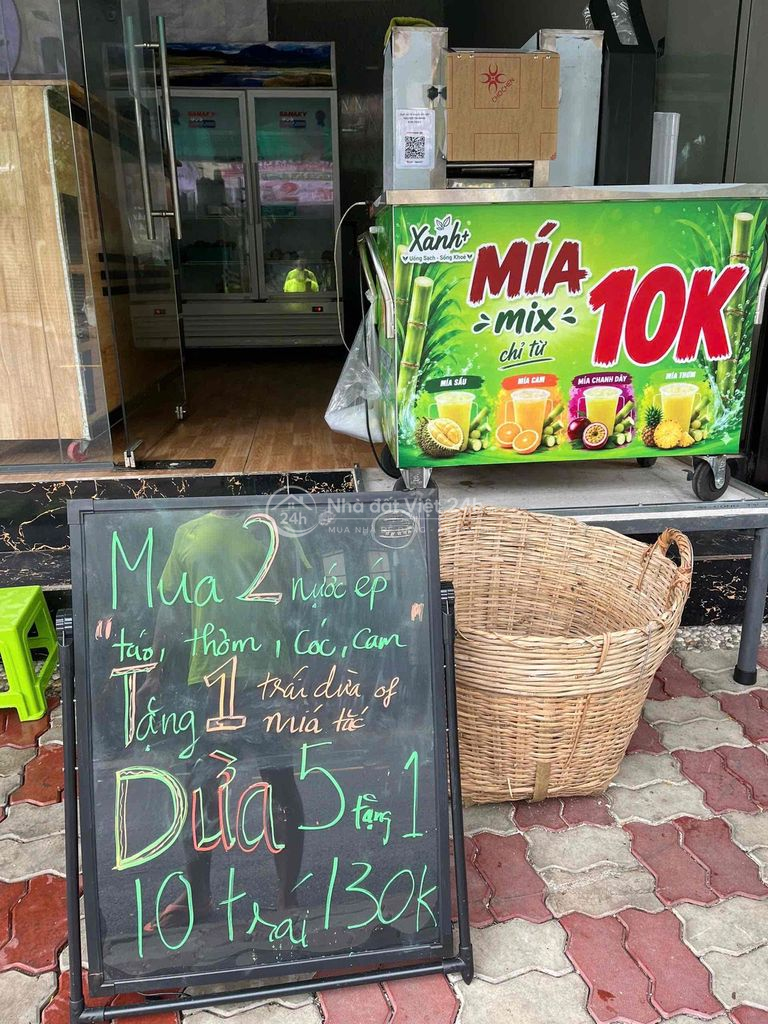 SANAKY
SANAKY
CHOICHEN
Xanh+
Uống Sạch - Sống Khoẻ
MÍA
mix
chỉ từ
10K
MÍA SẦU
MÍA CAM
MÍA CHANH DÂY
MÍA THƠM
Nhà đất Việt 24h
24h
Mua 2 nước ép
"táo, thơm, cóc, cam"
Tặng 1 trái dừa of
miá tắc
Dừa 5 tặng 1
10 trái 130k